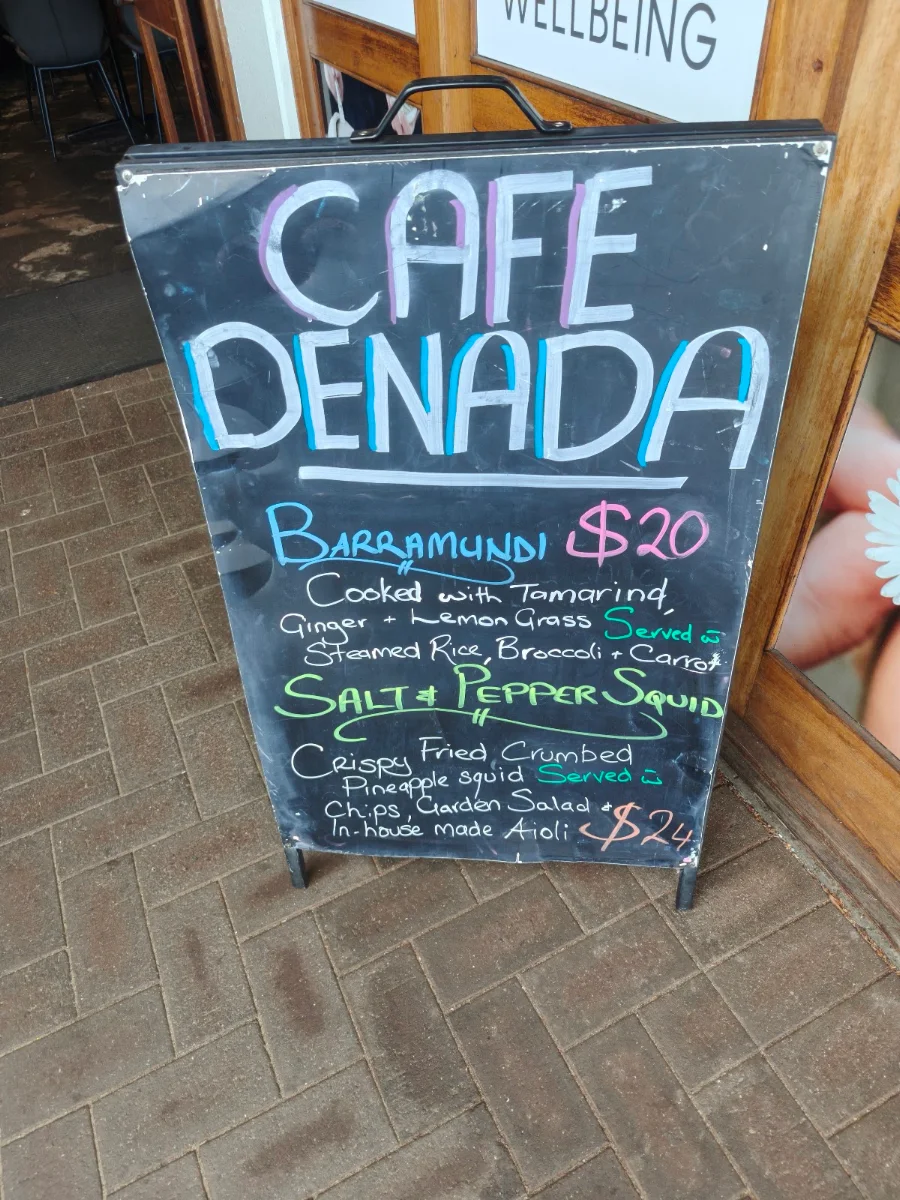 WELLBEING
CAFE
DENADA
BARRAMUNDI $20
Cooked with Tamarind,
Ginger + Lemon Grass Served w
Steamed Rice, Broccoli + Carrot
SALT & PEPPER SQUID
Crispy Fried Crumbed
Pineapple squid Served w
Chips, Garden Salad +
In-house made Aioli $24